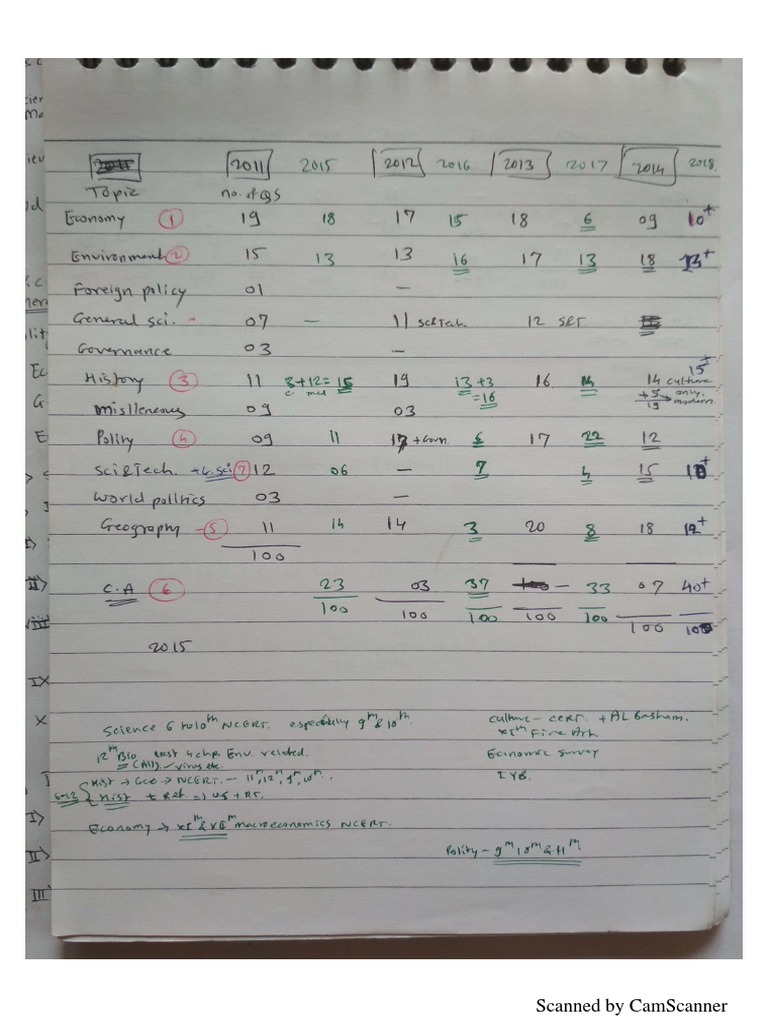 2011 2011 2015 2012 2016 2013 2017 2014 2018
Topic no. of QS
Economy 1 19 18 17 15 18 6 09 10+
Environment 2 15 13 13 16 17 13 18 13+
Foreign policy 01 —
General sci. - 07 — 11 Sc&Tech. 12 S&T
Governance 03 —
15+
History 3 11 3+12=15 19 13+3 16 14 14 culture
=16 +5 only.
19 modern
Mislleneous 09 03
Polity 4 09 11 17 + Govn 6 17 22 12
Sci & Tech. + G.Sci 7 12 06 — 7 4 15 10+
World politics 03 —
Geography - 5 11 14 14 3 20 8 18 12+
100
C.A 6 23 03 37 100 — 33 07 40+
100 100 100 100 100 100 100
2015
Science 6 to 10th NCERT. especially 9th & 10th. culture - CCRT. + AL Basham.
XIth Fine Art
12th Bio last 4 chp Env. related. Economic Survey
(All) / virus etc.
Hist → Geo → NCERT. — 11th, 12th, 9th, 10th. IYB.
6-12 Hist + Ref.
Economy → XIth & XIIth macroeconomics NCERT.
Polity - 9th 10th & 11th
Scanned by CamScanner